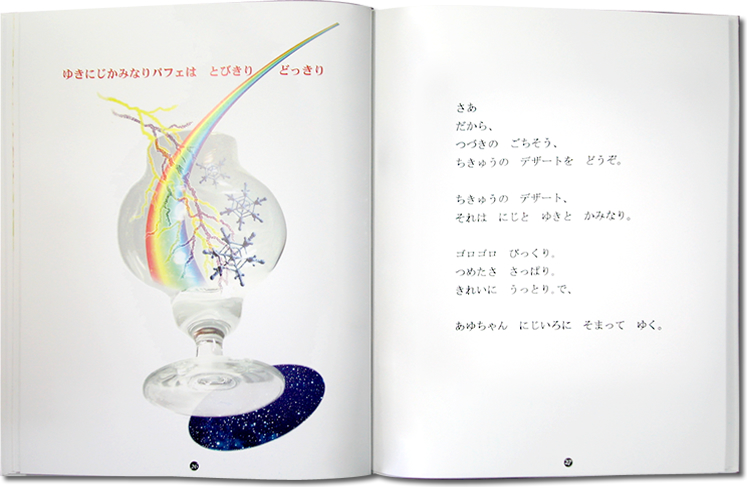 ゆきにじかみなりパフェは　とびきり　どっきり
さあ
だから、
つづきの　ごちそう、
ちきゅうの　デザートを　どうぞ。
ちきゅうの　デザート、
それは　にじと　ゆきと　かみなり。
ゴロゴロ　びっくり。
つめたさ　さっぱり。
きれいに　うっとり。で、
あゆちゃん　にじいろに　そまって　ゆく。
26
27